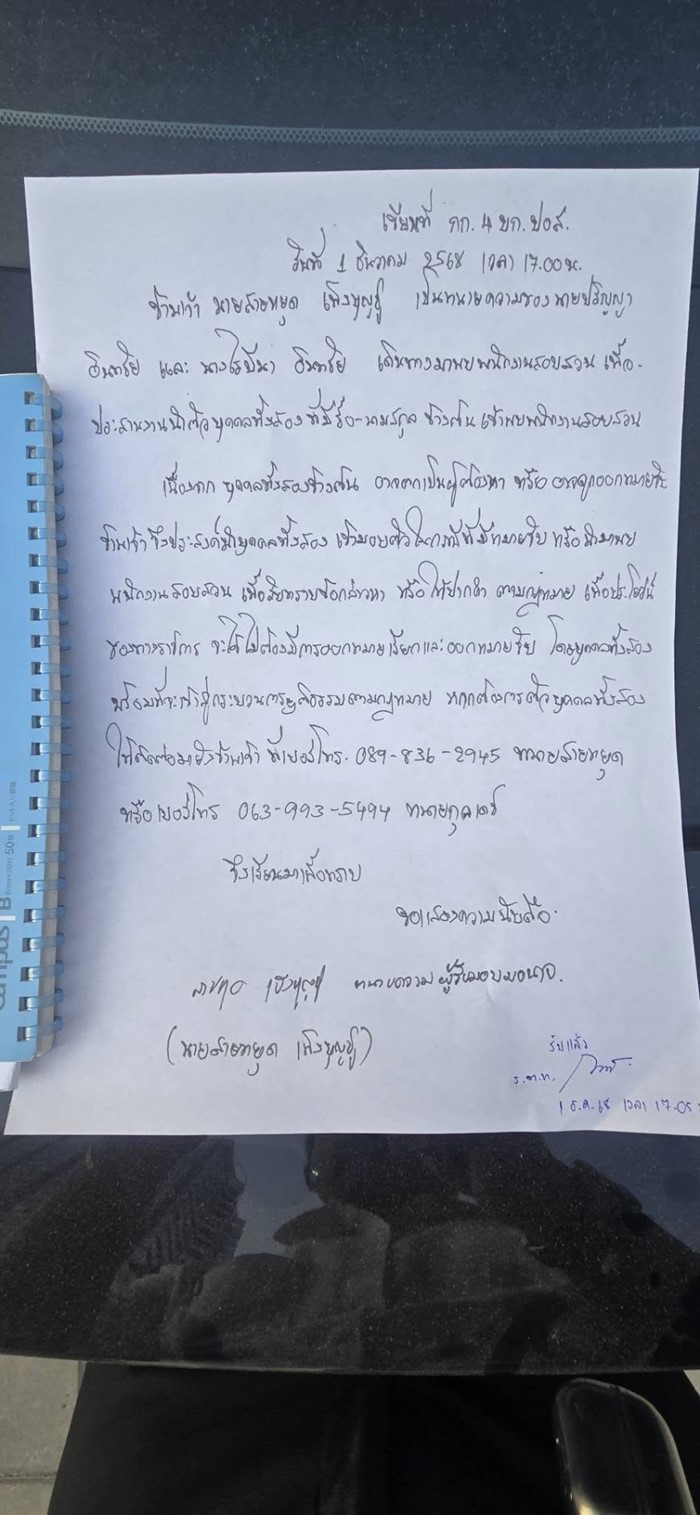 เขียนที่ กก.4 บก.ปอส.
วันที่ 1 ธันวาคม 2568 เวลา 17.00 น.
ข้าพเจ้า นายสายหยุด เพ็งบุญชู เป็นทนายความของ นายปริญญา
อินทชัย และ นางโรบีนา อินทชัย เดินทางมาพบพนักงานสอบสวน เพื่อ
ประสานงานนำตัวบุคคลทั้งสอง ที่มีชื่อ-นามสกุล ข้างต้น เข้าพบพนักงานสอบสวน
เนื่องจาก บุคคลทั้งสองข้างต้น อาจตกเป็นผู้ต้องหา หรือ อาจถูกออกหมายจับ
ข้าพเจ้า จึงประสงค์นำบุคคลทั้งสอง เข้ามอบตัวในกรณีที่มีหมายจับ หรือนำมาพบ
พนักงานสอบสวน เพื่อรับทราบข้อกล่าวหา หรือ ให้ปากคำ ตามกฎหมาย เพื่อประโยชน์
ของทางราชการ จะได้ไม่ต้องมีการออกหมายเรียกและออกหมายจับ โดยบุคคลทั้งสอง
พร้อมที่จะเข้าสู่กระบวนการยุติธรรมตามกฎหมาย หากต้องการตัวบุคคลทั้งสอง
ให้ติดต่อมายังข้าพเจ้า ที่เบอร์โทร. 089-836-2945 ทนายสายหยุด
หรือเบอร์โทร 063-993-5494 ทนายกุลเดช
จึงเรียนมาเพื่อทราบ
ขอแสดงความนับถือ
สายหยุด เพ็งบุญชู ทนายความผู้รับมอบอำนาจ.
(นายสายหยุด เพ็งบุญชู)
รับแล้ว
ร.ต.ท.
1 ธ.ค. 68 เวลา 17.05
Campus B
50